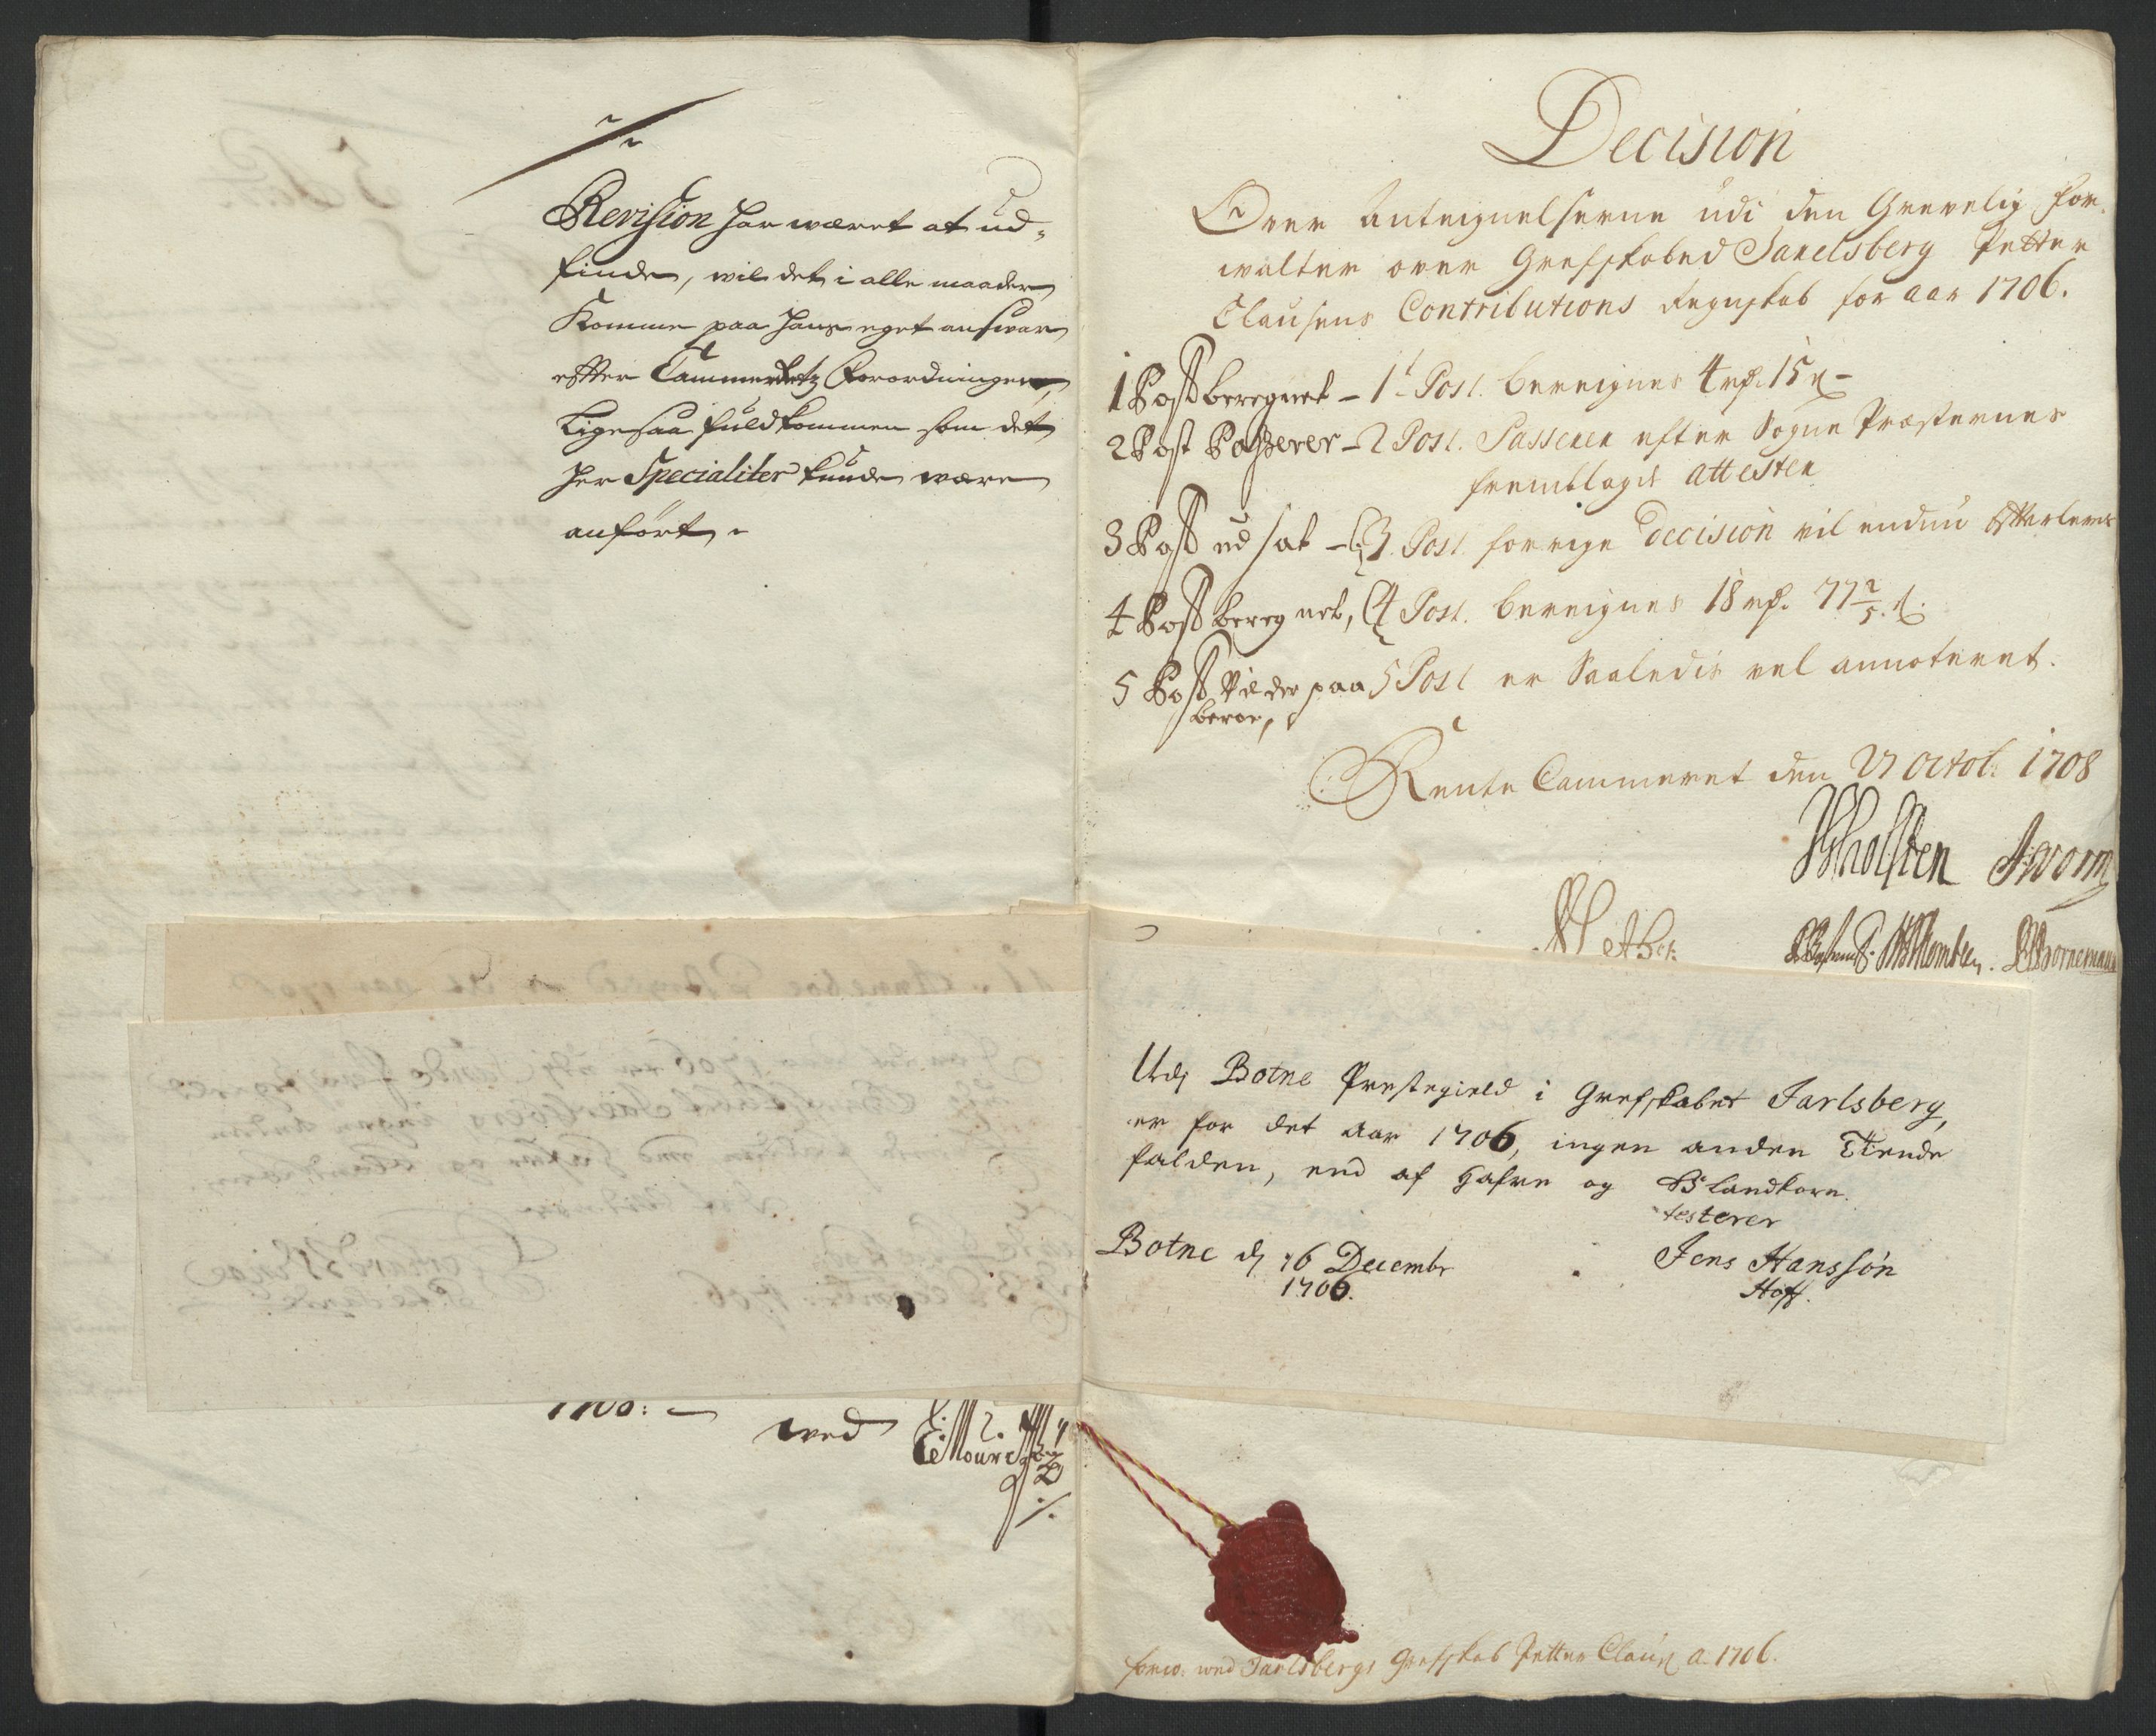 Revision har wæret at ud-
finde, wil det i alle maader
Komme paa hans eget answar
efter Cammerretz Forordningen,
Ligesaa fuldkommen som det
her Specialiter kunde wære
anført,
1708:
wed
Decision
Over Anteignelserne udi den Grevelig For-
walter over Grefskabed Jarelsberg Petter
Clausens Contributions Regnskab for aar 1706.
1 Post beregnet - 1t Post. bereignes 4 rd. 15 s -
2 Post Passerer - 2 Post. Passerer efter Sogne Præsternes
fremblagde attester
3 Post ud sat - 3 Post. forrige Decision vil endnu Efterleves
4 Post bereg net, 4 Post. bereignes 18 rd. 77 2/5 s.
5 Post Vil der paa 5 Post er Saaledis vel annoteret.
beroe,
Rente Cammeret den 27 Octob: 1708
Holsten Worm
Bornemann
Udj Botne Prestegield i Grefskabet Jarlsberg,
er for det aar 1706, ingen anden Tiende
falden, end af Hafre og Blandkorn.
testerer
Botne dj 16 Decembr
1706.
Jens Hanssøn
Hoff.
forw. wed Jarlsbergs Grefskab Petter Claus. a. 1706.